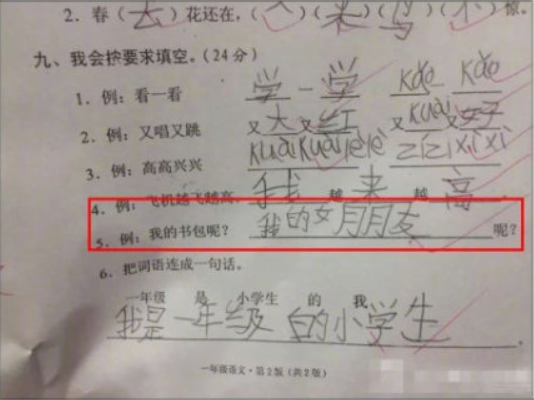 2. 春（去）花还在，（ ）（来）（鸟）（不）惊。
九、我会按要求填空。（24分）
1. 例：看一看 学一学 kǎo kǎo
2. 例：又唱又跳 又大又红 又kuài又好
3. 例：高高兴兴 kuài kuài lè lè zǐ zǐ xì xì
4. 例：飞机越飞越高。 我越来越高
5. 例：我的书包呢？ 我的女朋友呢？
6. 把词语连成一句话。
一年级 是 小学生 的 我
我是一年级白的小学生。
一年级语文·第2版（共2版）